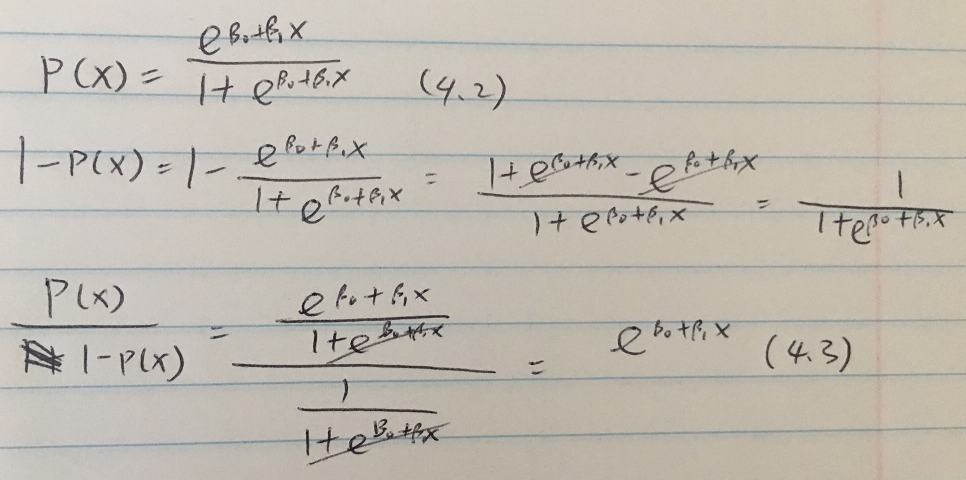 P(X) = e^{β₀+β₁X} / (1 + e^{β₀+β₁X}) (4.2)
1 - P(X) = 1 - e^{β₀+β₁X} / (1 + e^{β₀+β₁X}) = (1 + e^{β₀+β₁X} - e^{β₀+β₁X}) / (1 + e^{β₀+β₁X}) = 1 / (1 + e^{β₀+β₁X})
P(X) / (1 - P(X)) = (e^{β₀+β₁X} / (1 + e^{β₀+β₁X})) / (1 / (1 + e^{β₀+β₁X})) = e^{β₀+β₁X} (4.3)